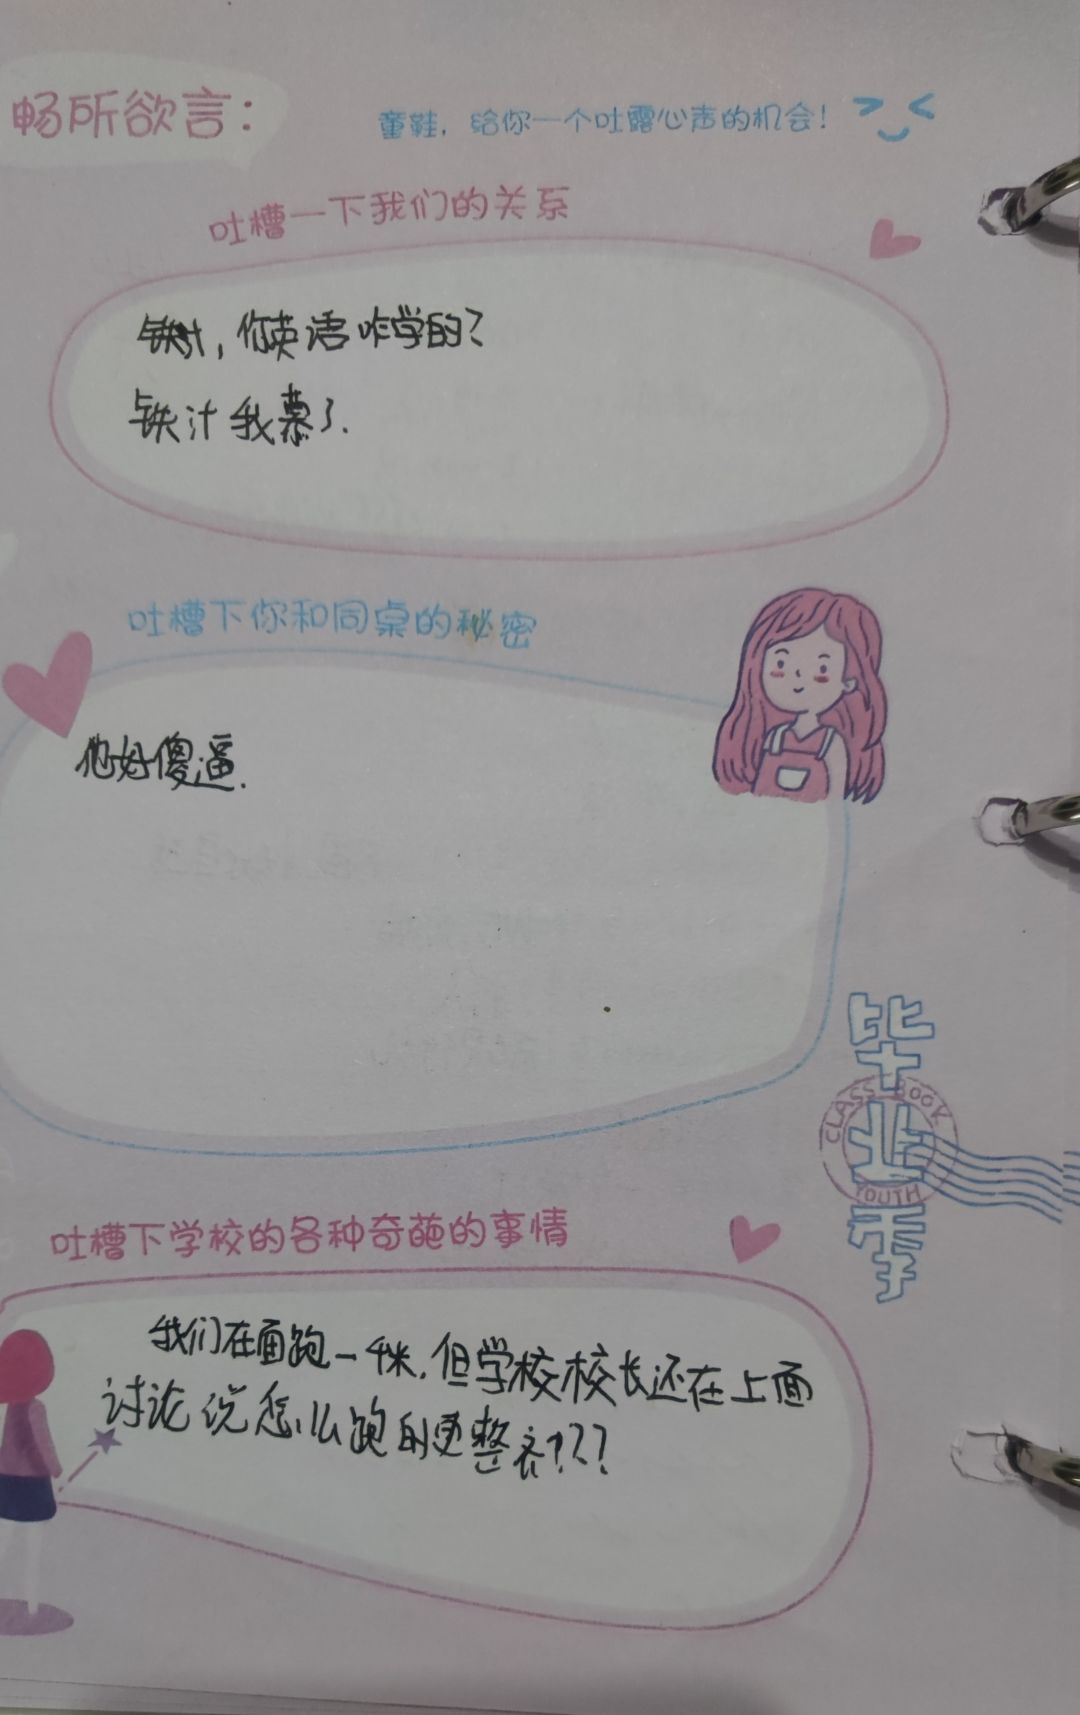 畅所欲言：
童鞋，给你一个吐露心声的机会！
吐槽一下我们的关系
铁汁，你英语咋学的？
铁汁我慕了.
吐槽下你和同桌的秘密
他好傻逼.
毕业季
CLASS BOOK
YOUTH
吐槽下学校的各种奇葩的事情
我们在面跑一千米.但学校校长还在上面
讨论说怎么跑的更整齐？？？